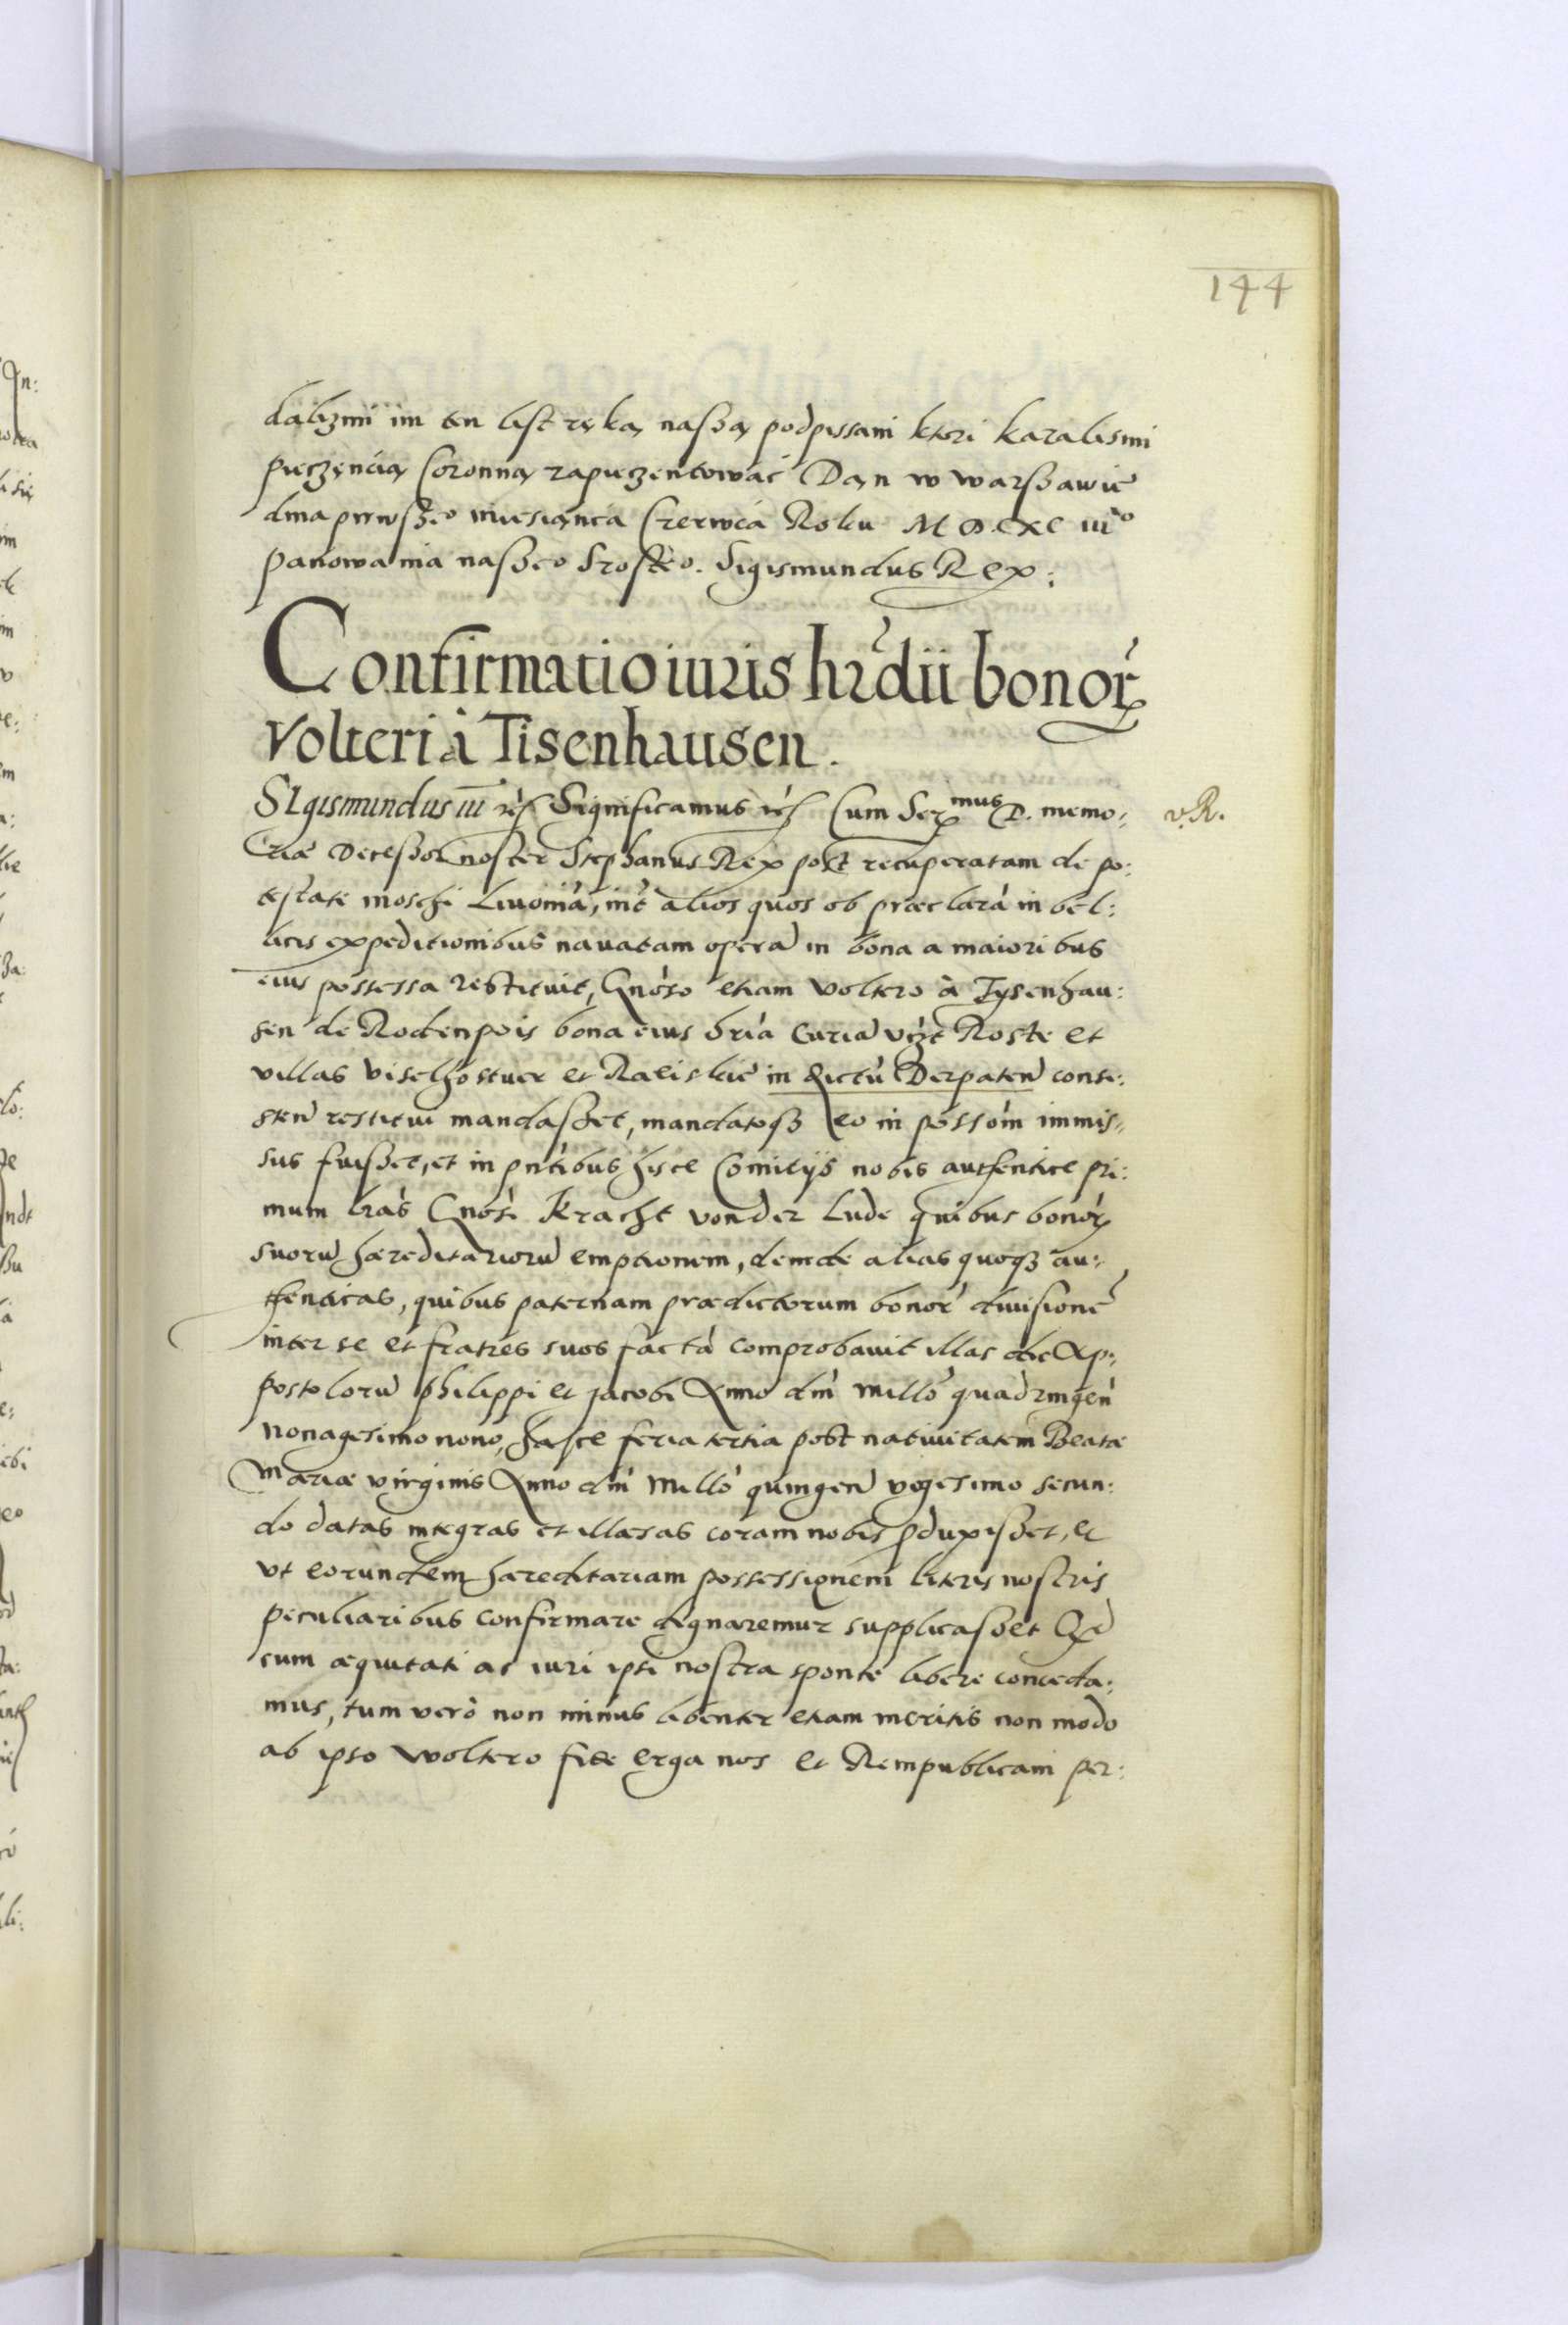 144
dalizmi im ten list ręką naszą podpissani ktori Karalismi
pieczęncią Coronną zapieczentowac Dan w Warszawie
dnia pirwszeo miesiąnca Czerwca Roku MDXC iiiº
Panowania naszeo Szosteo. Sigismundus Rex:
Confirmatio iuris hrdii bonor
Volteri à Tisenhausen.
SIgismundus iii etc Significamus etc Cum Sermus D. memo: v.R.
riæ Decessor noster Stephanus Rex post recuperatam de po:
testate moschi Livonia, int alios quos ob præclara in bel:
licis expeditionibus navatam opera in bona a maioribus
eius possessa restituit, Gnoso etiam Voltero à Tysenhau:
sen de Rodenpois bona eius hria Curia vizt Roste et
villas Viselhostuer et Raeiskie in dictu Derpaten consi:
sten restitui mandasset, mandatoqz eo in possom immis:
sus fuisset, et in pntibus hisce Comitijs nobis authentice pri:
mum lras Gnosi Kracht vonder Lude quibus bonor
suoru hæreditarioru emptionem, deinde alias quoqz au:
thenticas, quibus paternam prædictorum bonor divisione
inter se et fratres suos facta comprobavit illas die Ap:
postoloru Philippi et Jacobi Anno dni millo quadringen
nonagesimo nono, hasce feria tertia post nativitatem Beatæ
Mariæ virginis Anno dni Millo quingen vigesimo secun:
do datas integras et illæsas coram nobis pduxisset, et
vt eorundem hæreditariam possessionem literis nostris
peculiaribus confirmare dignaremur supplicasset Qd
cum æquitati ac iuri ipsi nostra sponte libere conceda:
mus, tum verò non minus libenter etiam meritis non modo
ab ipso Woltero fide erga nos et Rempublicam per: